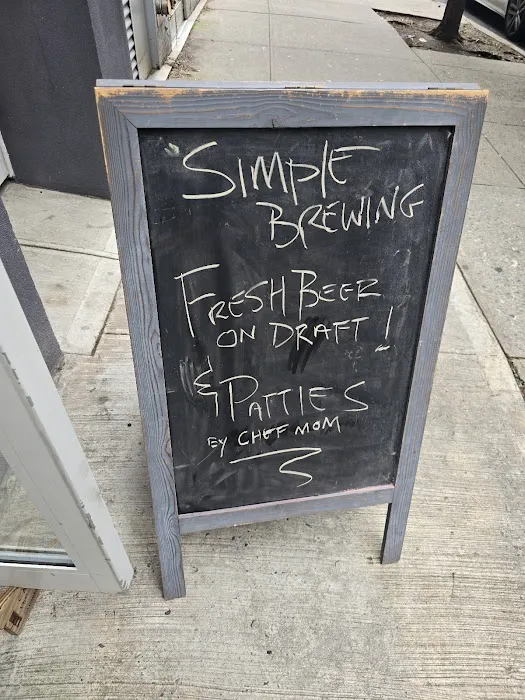 SIMPLE
BREWING
FRESH BEER
ON DRAFT!
& PATTIES
BY CHEF MOM